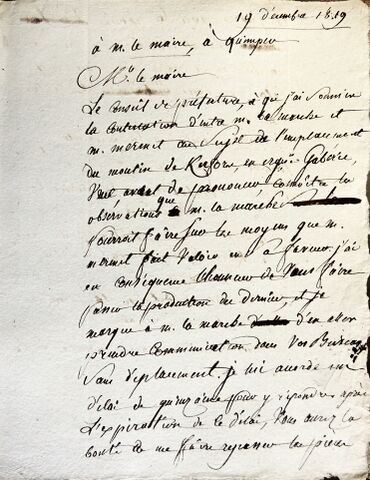 19 décembre 1819
à m. le maire, à Quimper
Mr. le maire
Le conseil de préfecture, à qui j'ai soumis
la contestation d'entre m. la marche et
m. mermet au sujet de l'emplacement
du moulin de en Ergué Gabéric,
veut avant de prononcer connoître les
observations que m. la marche
pourroit faire sur les moyens que m.
mermet fait valoir en sa faveur. j'ai
en conséquence l'honneur de vous faire
passer la production du dernier, et je
marque à m. la marche d'en aller
prendre communication dans vos Bureaux
sans déplacement. je lui accorde un
délai de quinzaine pour y répondre. après
l'expiration de ce délai, vous aurez la
bonté de me faire repasser les pièces